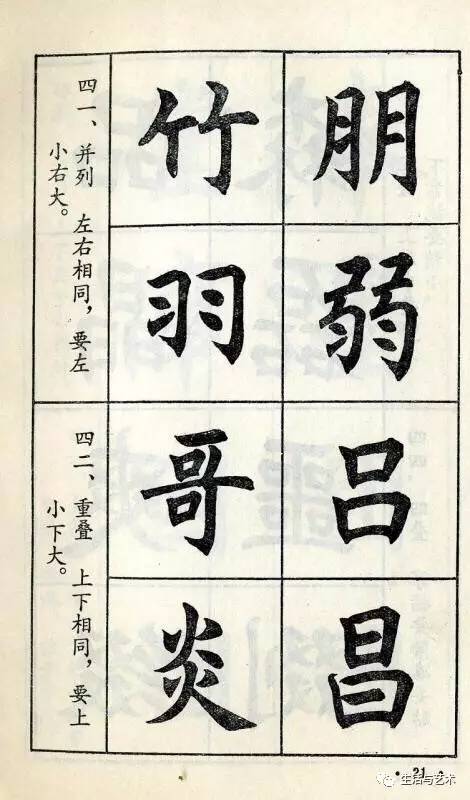 四一、并列 左右相同，要左
小右大。
朋
弱
竹
羽
四二、重叠 上下相同，要上
小下大。
吕
昌
哥
炎
• 21 •
生活与艺术